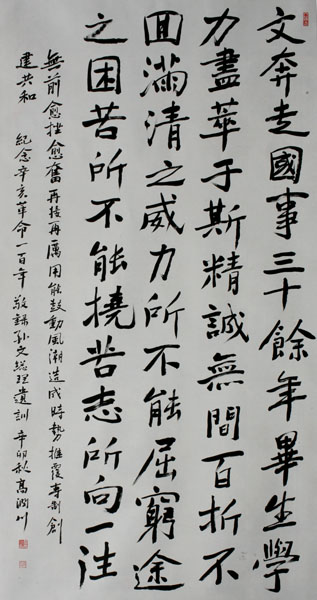 文奔走國事三十餘年畢生學
力盡萃于斯精誠無間百折不
回滿清之威力所不能屈窮途
之困苦所不能撓吾志所向一往
無前愈挫愈奮再接再厲用能鼓動風潮造成時勢推覆專制創
建共和 紀念辛亥革命一百年 敬録孫文總理遺訓 辛卯秋 高潤川